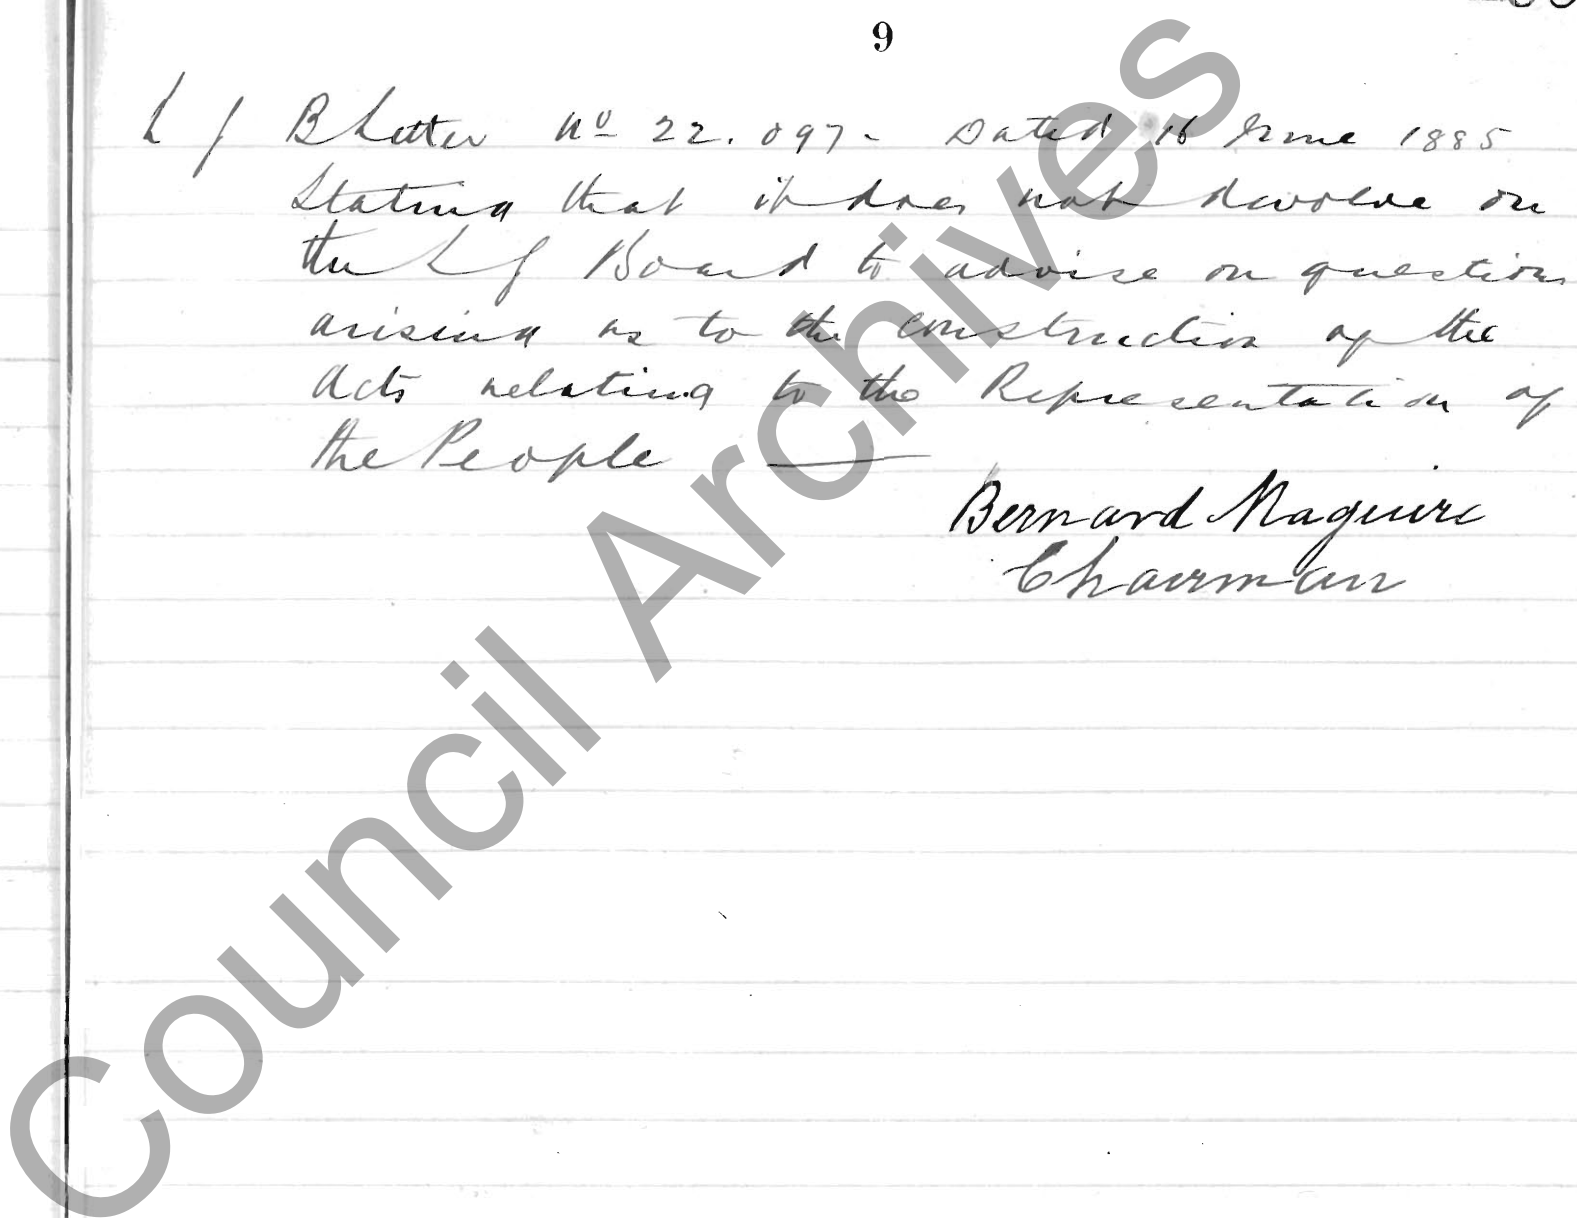 9
L G B Letter No 22.097 - Dated 16 June 1885
Stating that it does not devolve on
the L G Board to advise on questions
arising as to the construction of the
Acts relating to the Representation of
the People —
Bernard Maguire
Chairman
Council Archives